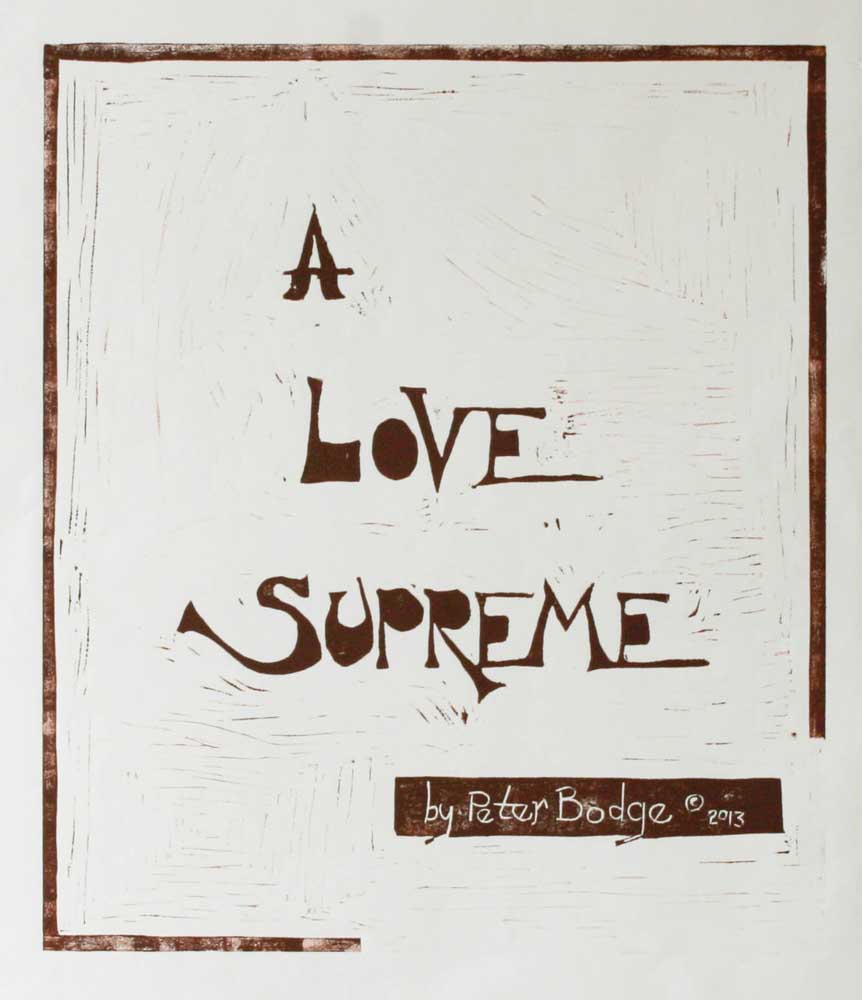 A
LOVE
SUPREME
by Peter Bodge © 2013